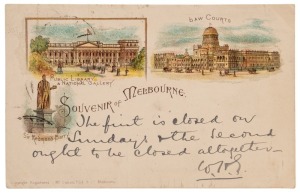 LAW COURTS
PUBLIC LIBRARY
& NATIONAL GALLERY
SOUVENIR OF MELBOURNE.
The first is closed on
Sundays & the second
ought to be closed altogether